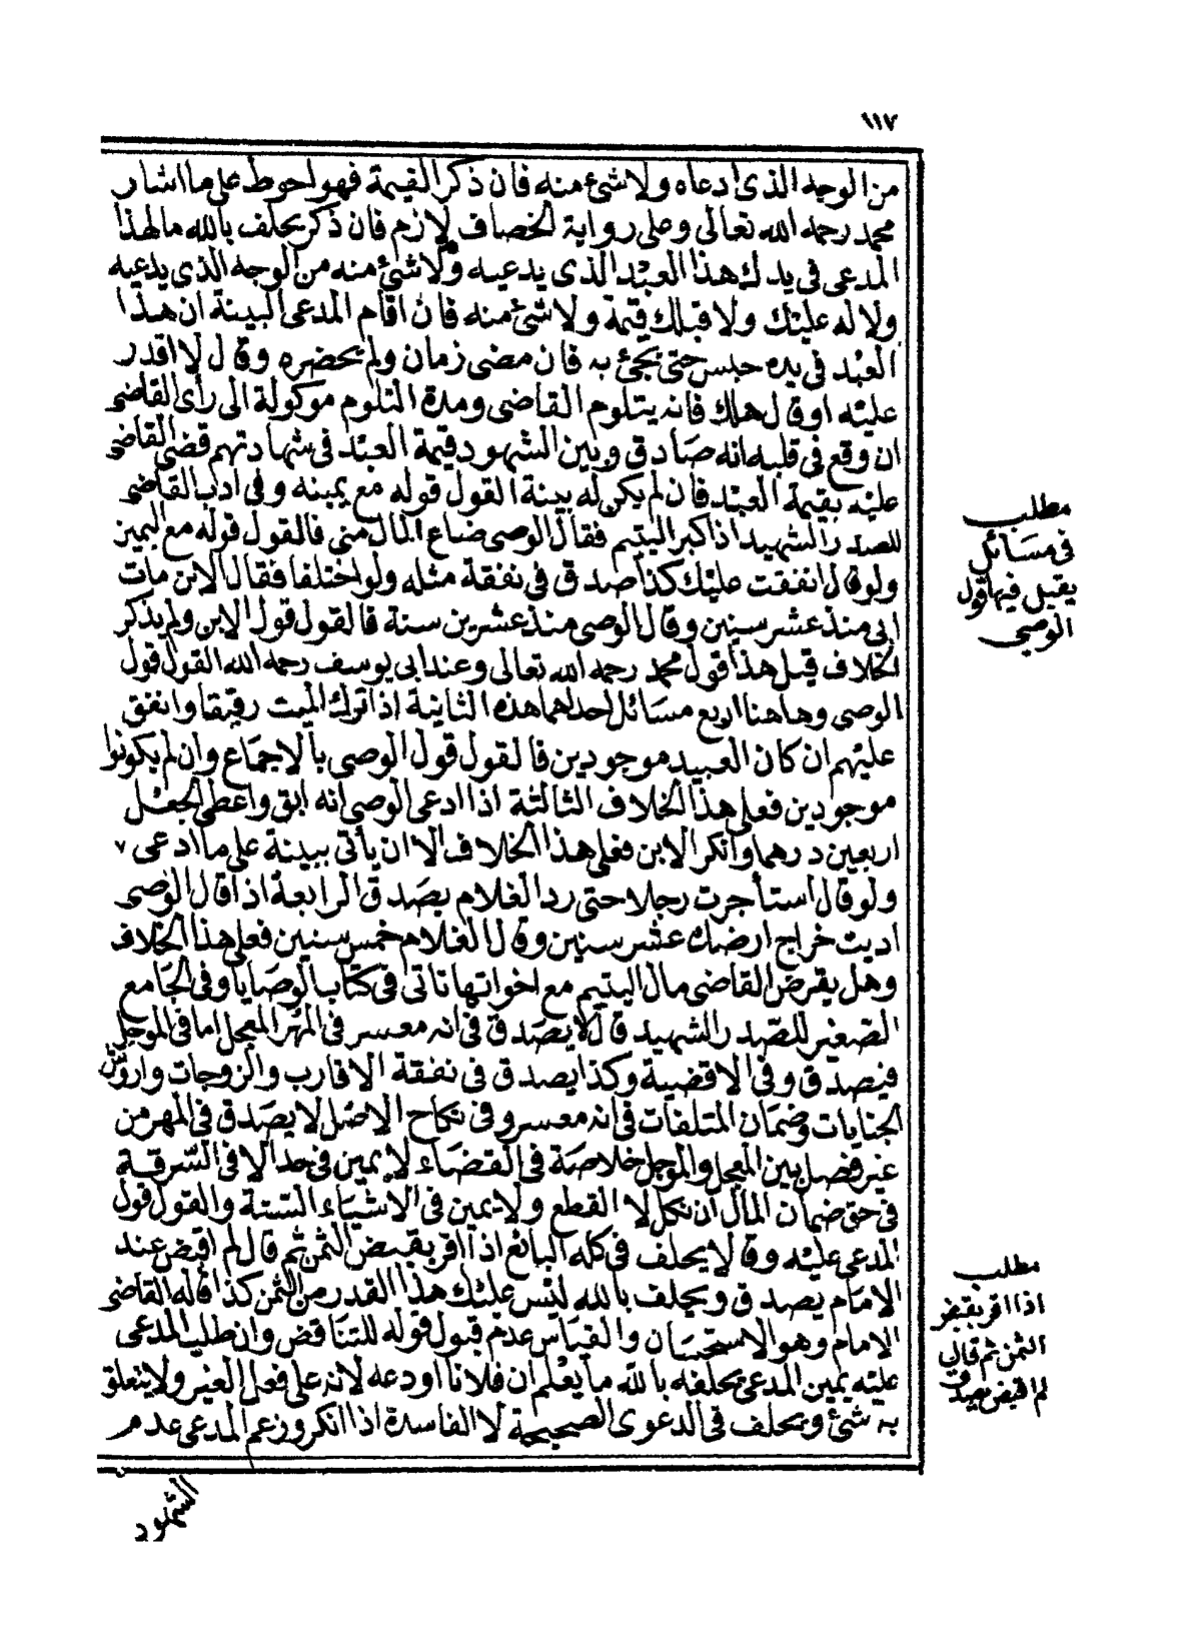 ١١٧
من الوجه الذى ادعاه ولا شئ منه فان ذكر القيمة فهو احوط على ما اشار
محمد رحمه الله تعالى وعلى رواية الخصاف لازم فان ذكر يحلف بالله ما لهذا
المدعى فى يدك هذا العبد الذى يدعيه ولا شئ منه من الوجه الذى يدعيه
ولا له عليك ولا قبلك قيمة ولا شئ منه فان اقام المدعى البينة ان هذا
العبد فى يده حبس حتى يجئ به فان مضى زمان ولم يحضره وقال لا اقدر
عليه او قال هلك فانه يتلوم القاضى ومدة التلوم موكولة الى رأى القاضى
ان وقع فى قلبه انه صادق وبين الشهود قيمة العبد فى شهادتهم قضى القاضى
عليه بقيمة العبد فان لم يكن له بينة القول قوله مع يمينه وفى ادب القاضى
للصدر الشهيد اذا كبر اليتيم فقال الوصى ضاع المال منى فالقول قوله مع اليمين
ولو قال انفقت عليك كذا صدق فى نفقة مثله ولو اختلفا فقال الابن مات
ابى منذ عشر سنين وقال الوصى منذ عشرين سنة فالقول قول الابن ولم يذكر
الخلاف قيل هذا قول محمد رحمه الله تعالى وعند ابى يوسف رحمه الله القول قول
الوصى وهاهنا اربع مسائل احداها هذه الثانية اذا ترك الميت رقيقا وانفق
عليهم ان كان العبيد موجودين فالقول قول الوصى بالاجماع وان لم يكونوا
موجودين فعلى هذا الخلاف الثالثة اذا ادعى الوصى انه ابق واعطى الجعل
اربعين درهما وانكر الابن فعلى هذا الخلاف الا ان يأتى ببينة على ما ادعى
ولو قال استأجرت رجلا حتى رد الغلام يصدق الرابعة اذا قال الوصى
اديت خراج ارضك عشر سنين وقال الغلام خمس سنين فعلى هذا الخلاف
وهل يقرض القاضى مال اليتيم مع اخواتها تاتى فى كتاب الوصايا وفى الجامع
الصغير للصدر الشهيد قال لا يصدق فى انه معسر فى المهر المعجل اما فى الموجل
فيصدق وفى الاقضية وكذا يصدق فى نفقة الاقارب والزوجات واروش
الجنايات وضمان المتلفات فى انه معسر وفى نكاح الاصل لا يصدق فى المهر من
غير فصل بين المعجل والموجل خلاصة فى القضاء لا يمين فى حد الا فى السرقة
فى حق ضمان المال ان نكل لا القطع ولا يمين فى الاشياء الستة والقول قول
المدعى عليه وقالا يحلف فى كله البائع اذا اقر بقبض الثمن ثم قال لم اقبض عند
الامام يصدق ويحلف بالله ليس عليك هذا القدر من الثمن كذا قاله القاضى
الامام وهو الاستحسان والقياس عدم قبول قوله للتناقض وان طلب المدعى
عليه يمين المدعى يحلفه بالله ما يعلم ان فلانا اودعه لانه على فعل الغير ولا يتعلق
به شئ ويحلف فى الدعوى الصحيحة لا الفاسدة اذا انكر وزعم المدعى عدم
الشهود
مطلب
فى مسائل
يقبل فيها قول
الوصى
مطلب
اذا اقر بقبض
الثمن ثم قال
لم اقبض يصدق